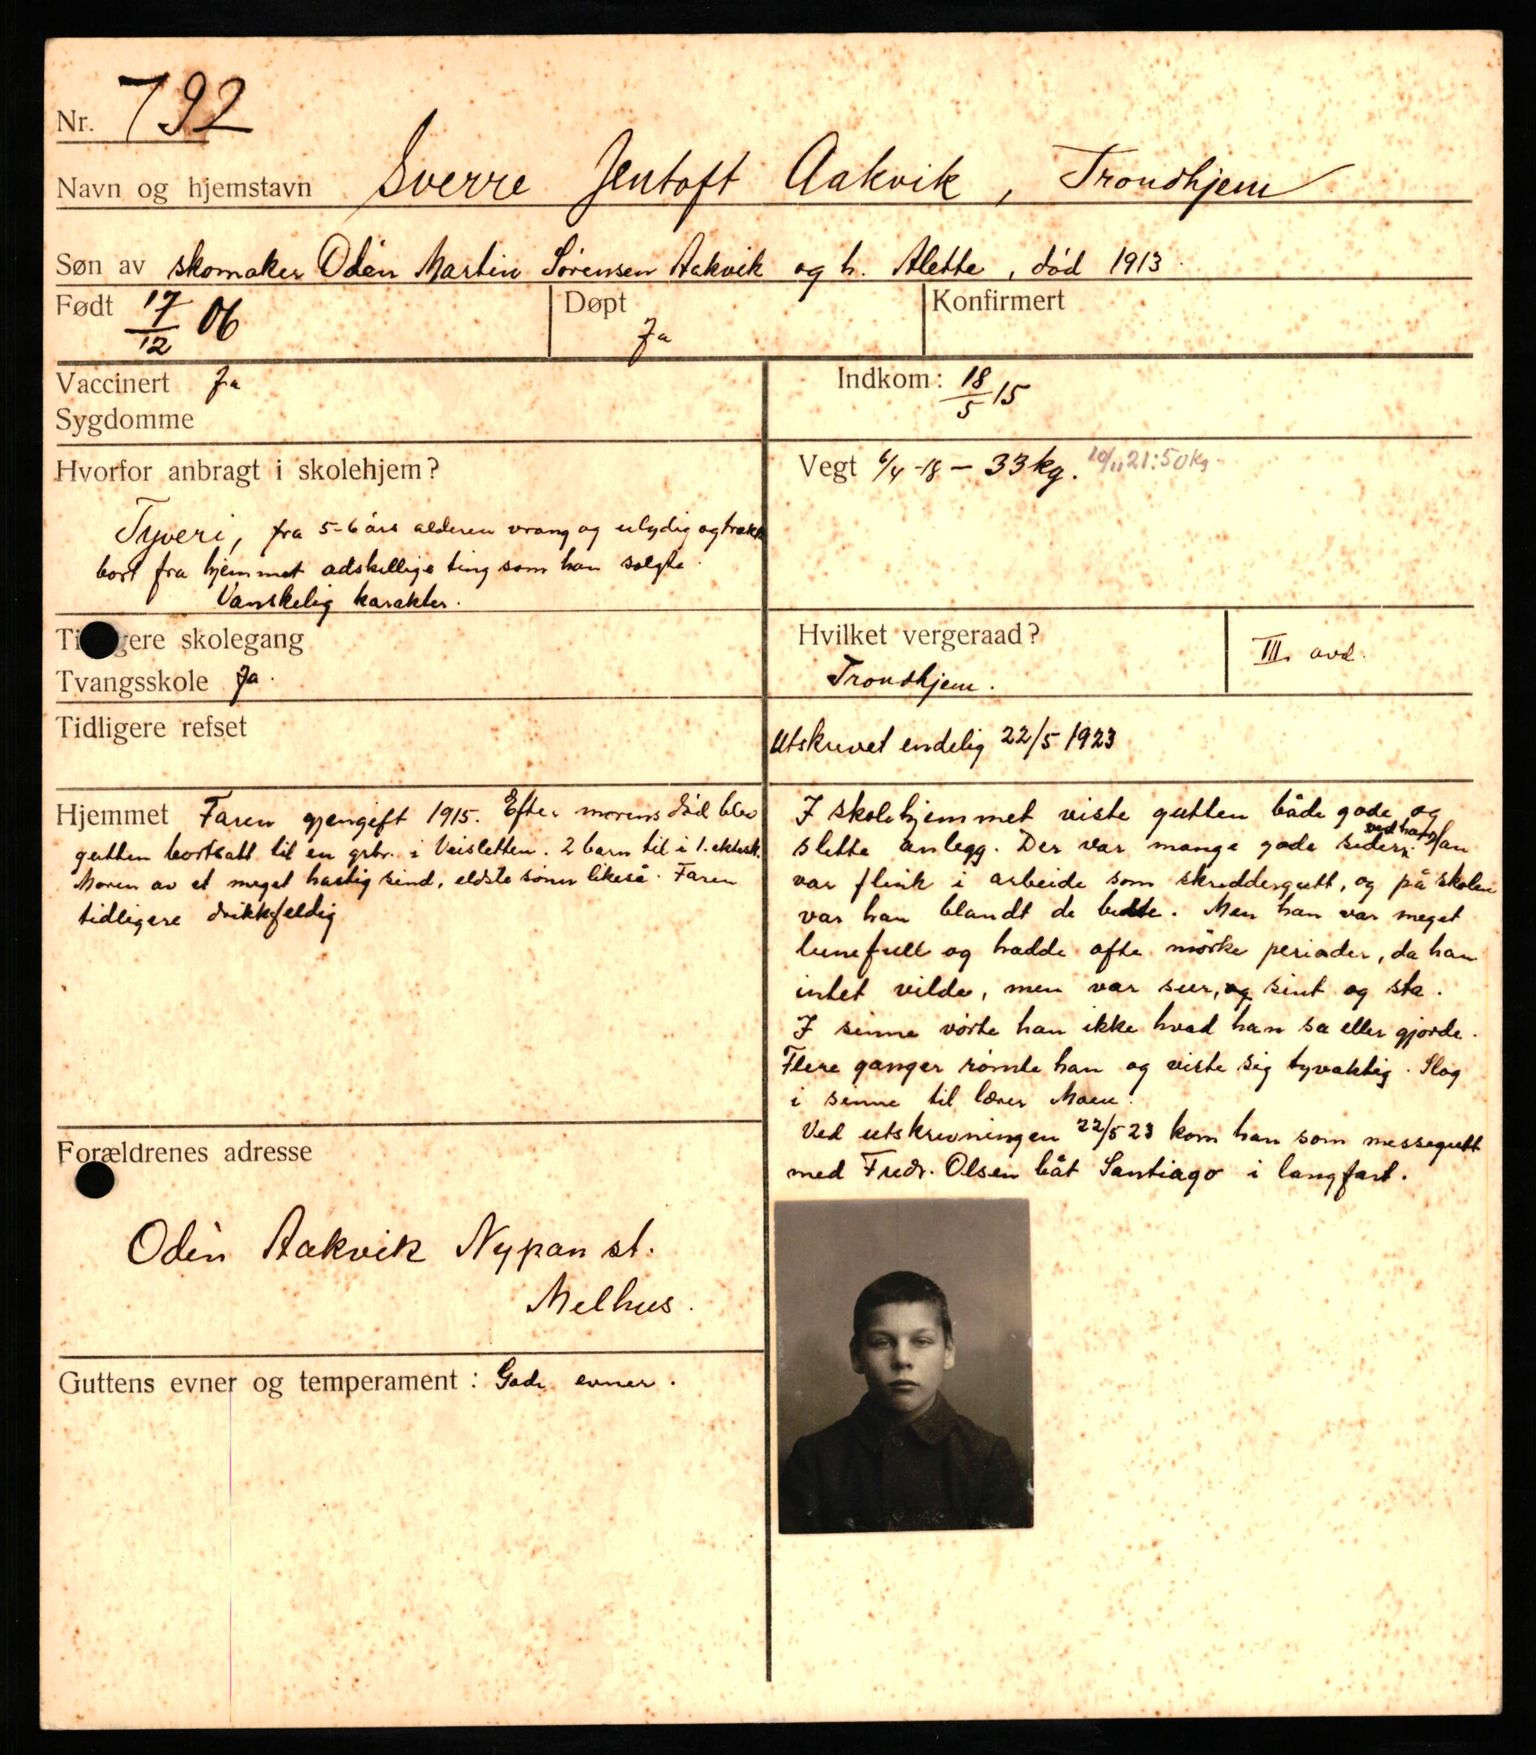 Nr. 792
Navn og hjemstavn Sverre Jentoft Aakvik, Trondhjem
Søn av skomaker Odèn Martin Sørensen Aakvik og h. Alette, død 1913.
Født 17/12 06 Døpt Ja Konfirmert
Vaccinert Ja
Sygdomme
Indkom: 18/5 15
Hvorfor anbragt i skolehjem?
Tyveri, fra 5-6 års alderen vrang og ulydig og trækk
bort fra hjemmet adskillige ting som han solgte.
Vanskelig karakter.
Vegt 6/4 -18 – 33 kg. 10/11 21: 50 kg.
Ti gere skolegang
Tvangsskole Ja.
Hvilket vergeraad?
Trondhjem.
III. avd.
Tidligere refset
Utskrevet endelig 22/5 1923
Hjemmet Faren gjengift 1915. Efter morens død blev
gutten bortsatt til en grbr. i Veisletten. 2 barn til i 1. ektesk.
Moren av et meget hastig sind, eldste sønn likeså. Faren
tidligere drikkfeldig
Forældrenes adresse
Odèn Aakvik Nypan st.
Melhus.
Guttens evner og temperament: Gode evner.
I skolehjemmet viste gutten både gode og
slette anlegg. Der var mange gode sider ved ham. Han
var flink i arbeide som skreddergutt, og på skolen
var han blandt de beste. Men han var meget
lunefull og hadde ofte mørke perioder, da han
intet vilde, men var sur, og sint og sta.
I sinne vørte han ikke hvad han sa eller gjorde.
Flere ganger rømte han og viste sig tyvaktig. Slog
i sinne til lærer Moen.
Ved utskrivningen 22/5 23 kom han som messegutt
med Fredr. Olsen båt Santiago i langfart.